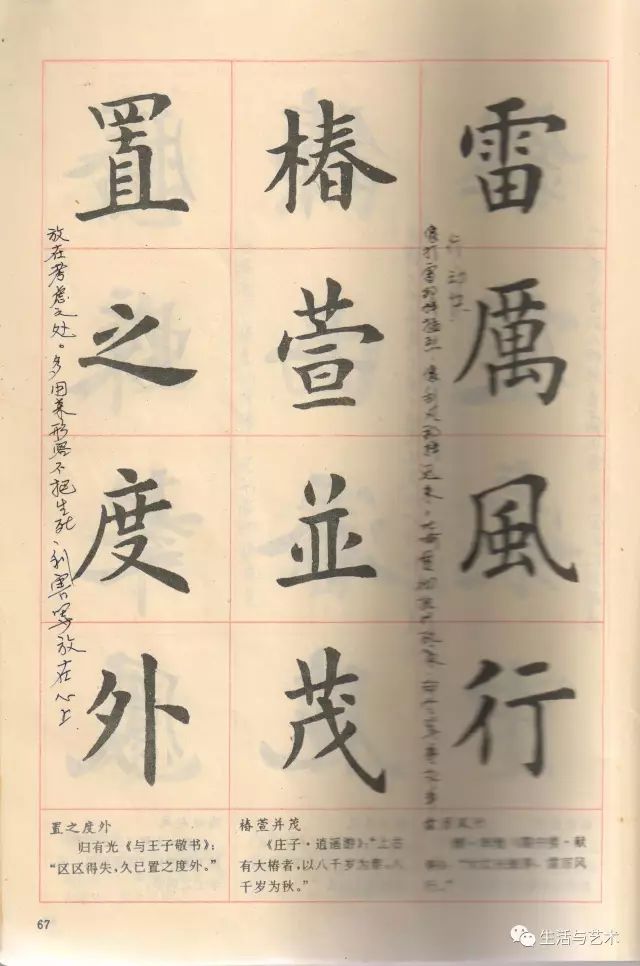 雷厲風行
行动快
像打雷那样猛烈，像刮风那样
椿萱並茂
置之度外
放在考虑之处。多用来形容不把生死、利害等放在心上
置之度外
归有光《与王子敬书》：
“区区得失，久已置之度外。”
椿萱并茂
《庄子·逍遥游》：“上古
有大椿者，以八千岁为春，八
千岁为秋。”
雷厉风行
雷厉风
行。”
67
生活与艺术